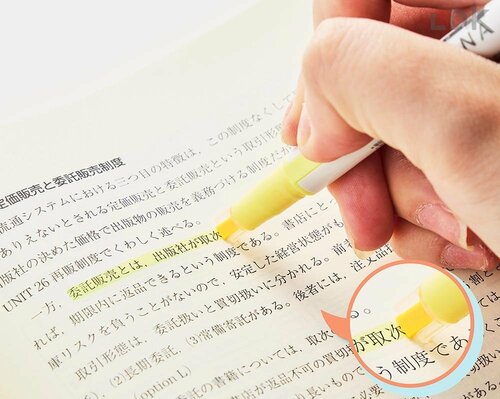 定価販売と委託販売制度
流通システムにおける三つ目の特徴は、この制度なくして
ありえないとされる定価販売と委託販売という取引形
版社の決めた価格で出版物の販売を義務づける制度だが
UNIT 26 再販制度でくわしく述べる。
一方、委託販売とは、出版社が取次
れば、期限内に返品できるという制度である。書店にと
庫リスクを負うことがないので、安定した経営状態が
取引形態は、委託扱いと買切扱いに分かれる。
、(2)長期委託、(3)常備寄託がある。後者には、注文品
(option L)
委託の書籍については、取次
書店が返品不可の買切
が取次
う制度であ
NA